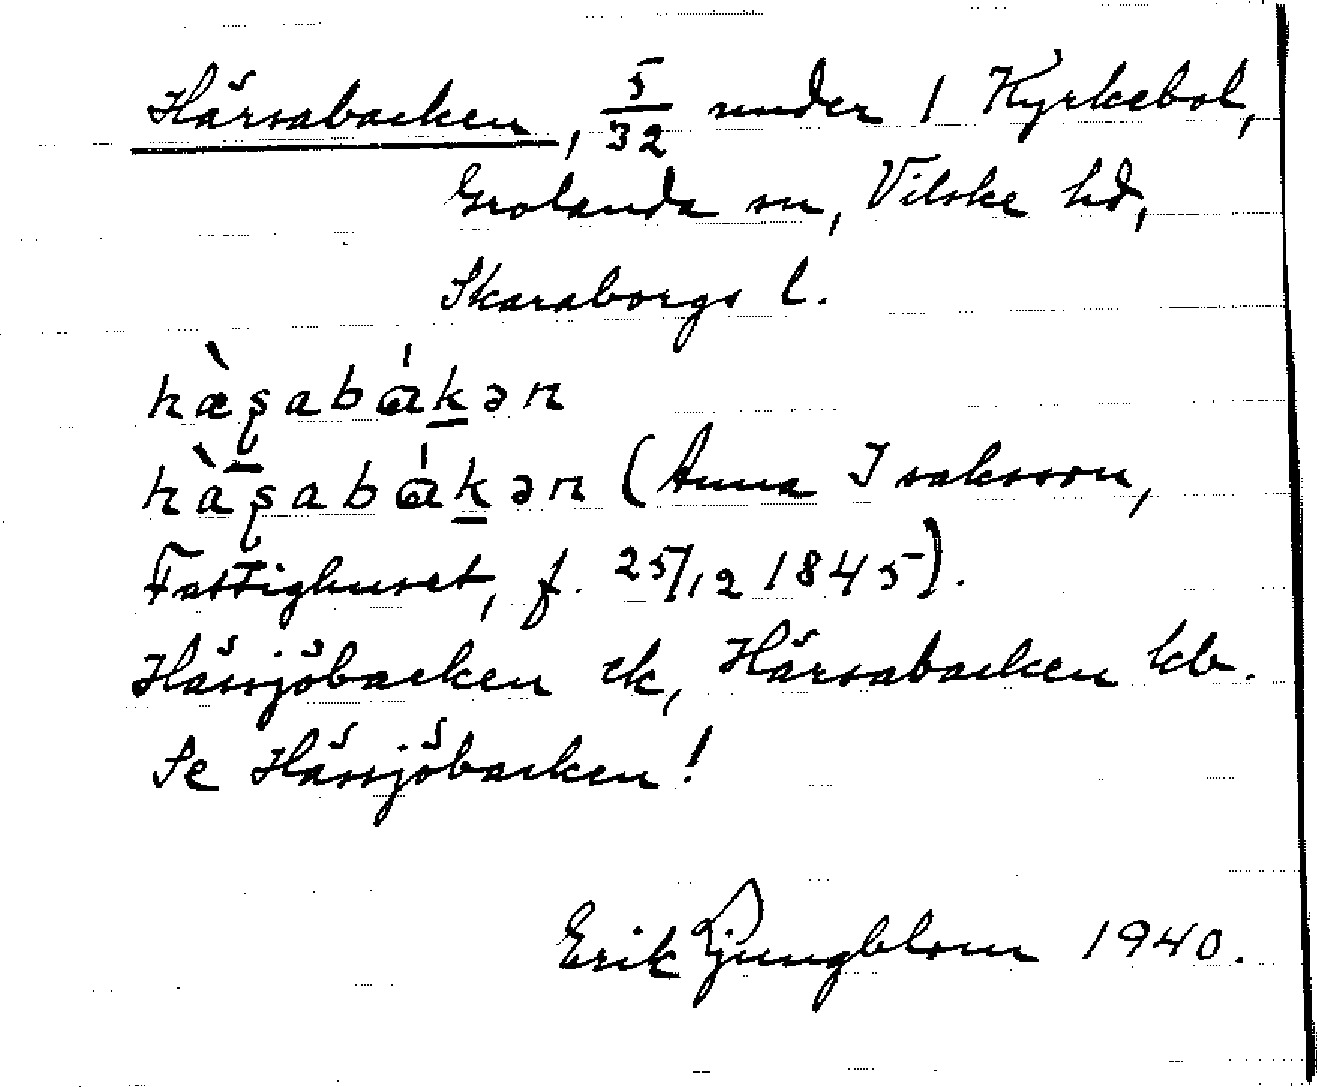 Härsabacken, 5/32 under 1 Kyrkebol,
Grolanda sn, Vilske hd,
Skaraborgs l.
hæ̀ʂabɑ́k̠ən
hàʂabɑ́k̠ən (Anna Isaksson,
Fattighuset, f. 25/12 1845).
Hässjöbacken ek, Härsabacken kb.
Se Hässjöbacken!
Erik Ljungblom 1940.